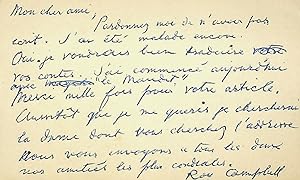 Mon cher ami,
Pardonnez moi de n'avoir pas
ecrit. J'ai été malade encore.
Oui je voudrais bien traduire
vos contes. J'ai commencé aujourdhui
avec "de Maudit"
Merci mille fois pour votre article,
Aussitot que je me gueris je chercherai
la dame dont vous cherchez l'addresse
Nous vous envoyons a tous les deux
nos amitiés les plus cordiales.
Roy Campbell